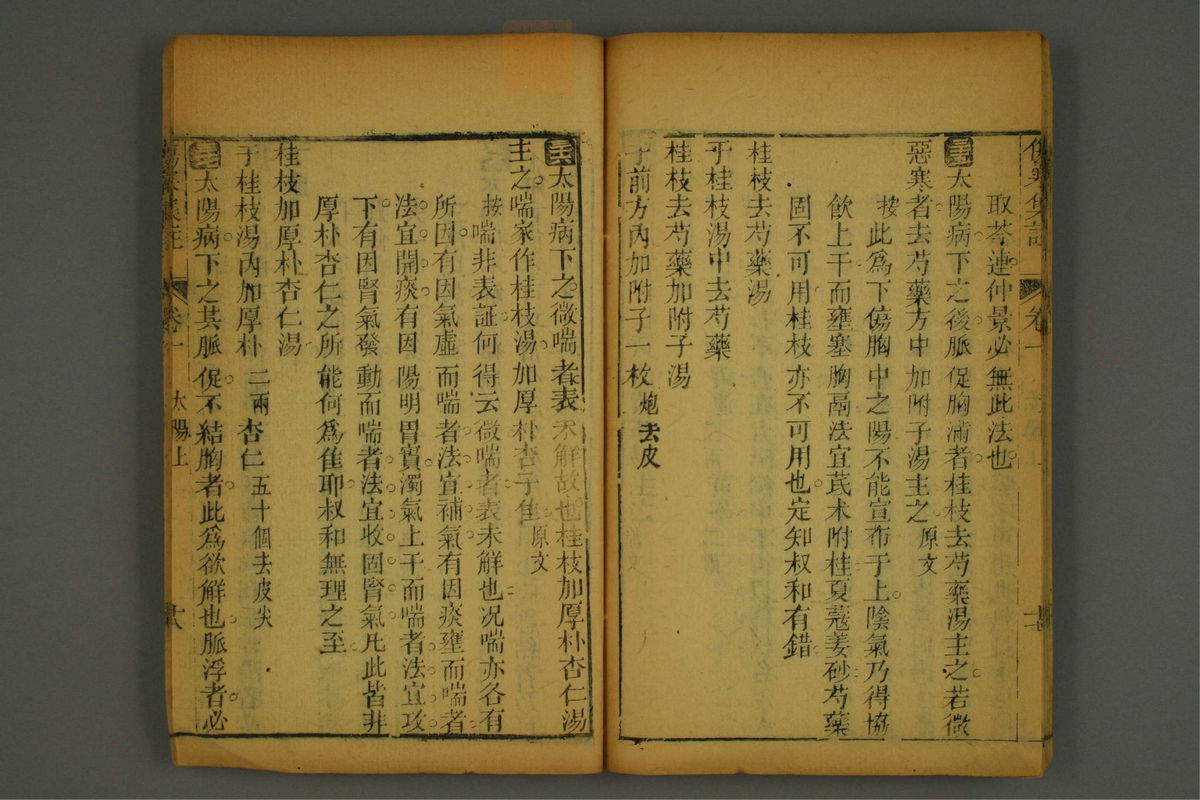 傷寒集註 卷一 十七
取芩連仲景必無此法也
太陽病下之後脈促胸滿者桂枝去芍藥湯主之若微
惡寒者去芍藥方中加附子湯主之 原文
按此為下傷胸中之陽不能宣布于上陰氣乃得協
飲上干而壅塞胸鬲法宜茋朮附桂夏蔻姜砂芍藥
固不可用桂枝亦不可用也定知叔和有錯
桂枝去芍藥湯
于桂枝湯中去芍藥
桂枝去芍藥加附子湯
于前方內加附子一枚炮去皮
太陽病下之微喘者表未解故也桂枝加厚朴杏仁湯
主之喘家作桂枝湯加厚朴杏子隹 原文
按喘非表証何得云微喘者表未解也况喘亦各有
所因有因氣虛而喘者法宜補氣有因痰壅而喘者
法宜開痰有因陽明胃實濁氣上干而喘者法宜攻
下有因腎氣發動而喘者法宜收固腎氣凡此皆非
厚朴杏仁之所能何為隹耶叔和無理之至
桂枝加厚朴杏仁湯
于桂枝湯內加厚朴二兩杏仁五十個去皮尖
太陽病下之其脈促不結胸者此為欲解也脈浮者必
傷寒集註 卷一 太陽上 十八